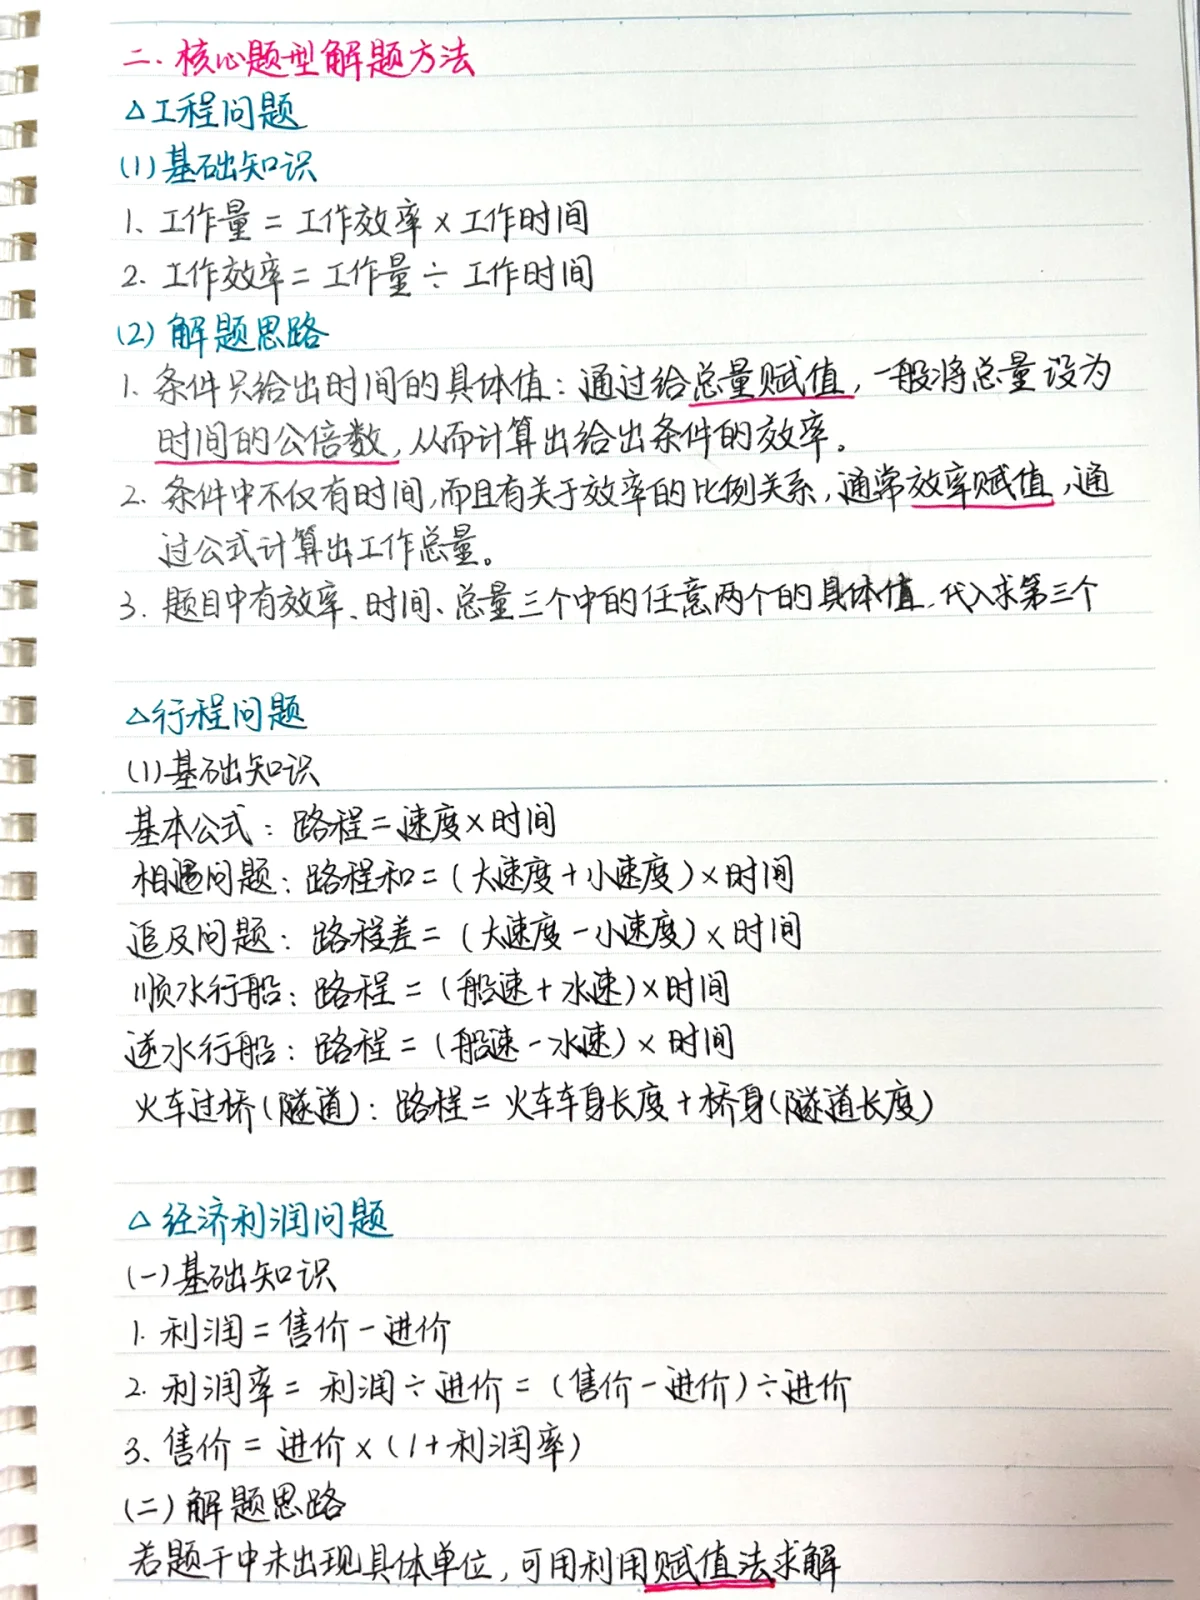 二.核心题型解题方法
△工程问题
(1)基础知识
1、工作量=工作效率×工作时间
2.工作效率=工作量÷工作时间
(2)解题思路
1.条件只给出时间的具体值:通过给总量赋值,一般将总量设为
时间的公倍数,从而计算出给出条件的效率。
2.条件中不仅有时间,而且有关于效率的比例关系,通常效率赋值,通
过公式计算出工作总量。
3.题目中有效率、时间、总量三个中的任意两个的具体值,代入求第三个
△行程问题
(1)基础知识
基本公式:路程=速度×时间
相遇问题:路程和=(大速度+小速度)×时间
追及问题:路程差=(大速度-小速度)×时间
顺水行船:路程=(船速+水速)×时间
逆水行船:路程=(船速-水速)×时间
火车过桥(隧道):路程=火车车身长度+桥身(隧道长度)
△经济利润问题
(一)基础知识
1.利润=售价-进价
2.利润率=利润÷进价=(售价-进价)÷进价
3、售价=进价×(1+利润率)
(二)解题思路
若题干中未出现具体单位,可用利用赋值法求解